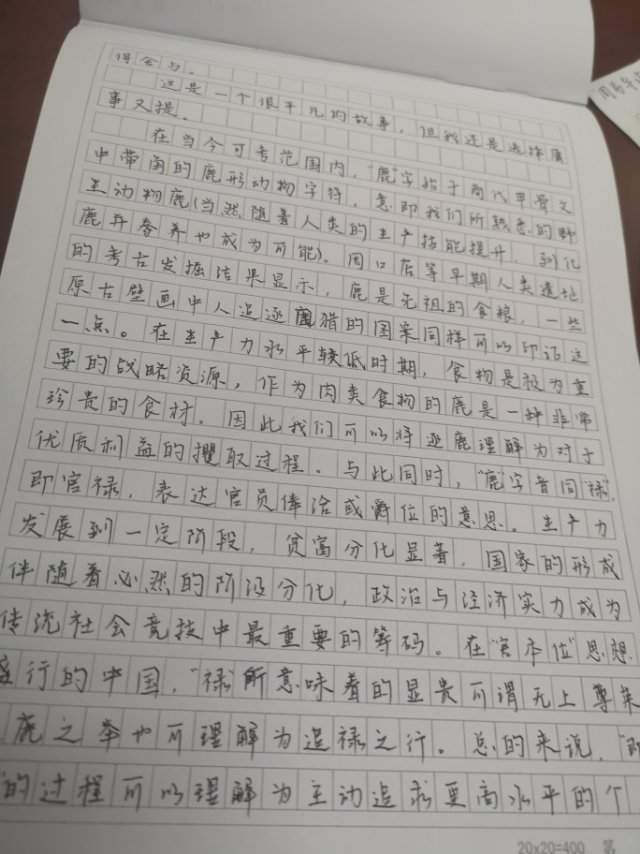 得会与。
这是一个很平凡的故事,但我还是选择废
事又提。
在当今可考范围内,“鹿”字始于商代甲骨文
中带角的鹿形动物字符,意即我们所熟悉的野
生动物鹿(当然随着人类的生产技能提升,驯化
鹿并眷养也成为可能)。周口店等早期人类遗址
的考古发掘结果显示,鹿是先祖的食粮,一些
原古壁画中人追逐猎的图案同样可以印证这
一点。在生产力水平较低时期,食物是极为重
要的战略资源,作为肉类食物的鹿是一种非常
珍贵的食材。因此我们可以将逐鹿理解为对于
优质利益的攫取过程。与此同时,“鹿”字音同“禄”,
即官禄,表达官员俸洽或爵位的意思。生产力
发展到一定阶段,贫富分化显著,国家的形成
伴随着必然的阶级分化,政治与经济实力成为
传统社会竞技中最重要的筹码。在“官本位”思想
盛行的中国,“禄”所意味着的显贵可谓无上尊荣
鹿之举也可理解为追禄之行。总的来说,“
”的过程可以理解为主动追求更高水平的个
20x20=400 第
周易